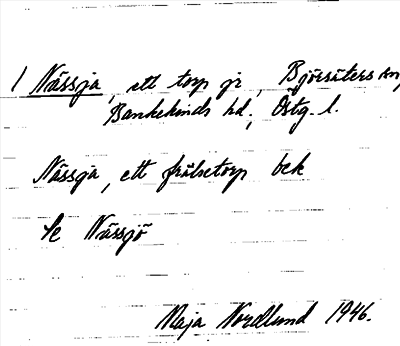 1 Nässja, ett torp jr, Björsäters sn,
Bankekinds hd., Östg. l.
Nässja, ett frälsetorp bek
Se Nässjö
Maja Nordlund 1946.